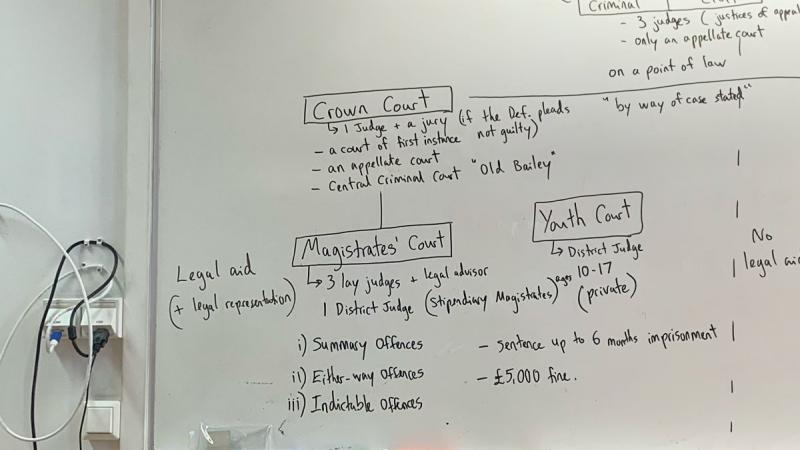 Criminal
- 3 judges (justices of appeal
- only an appellate court
on a point of law
"by way of case stated"
Crown Court
↳ 1 Judge + a jury (if the Def. pleads not guilty)
- a court of first instance
- an appellate court
- Central Criminal Court "Old Bailey"
Magistrates' Court
↳ 3 lay judges + legal advisor
1 District Judge (Stipendiary Magistrates)
Youth Court
↳ District Judge
ages 10-17
(private)
Legal aid
(+ legal representation)
No
legal aid
i) Summary Offences - sentence up to 6 months imprisonment
ii) Either-way Offences - £5,000 fine.
iii) Indictable Offences